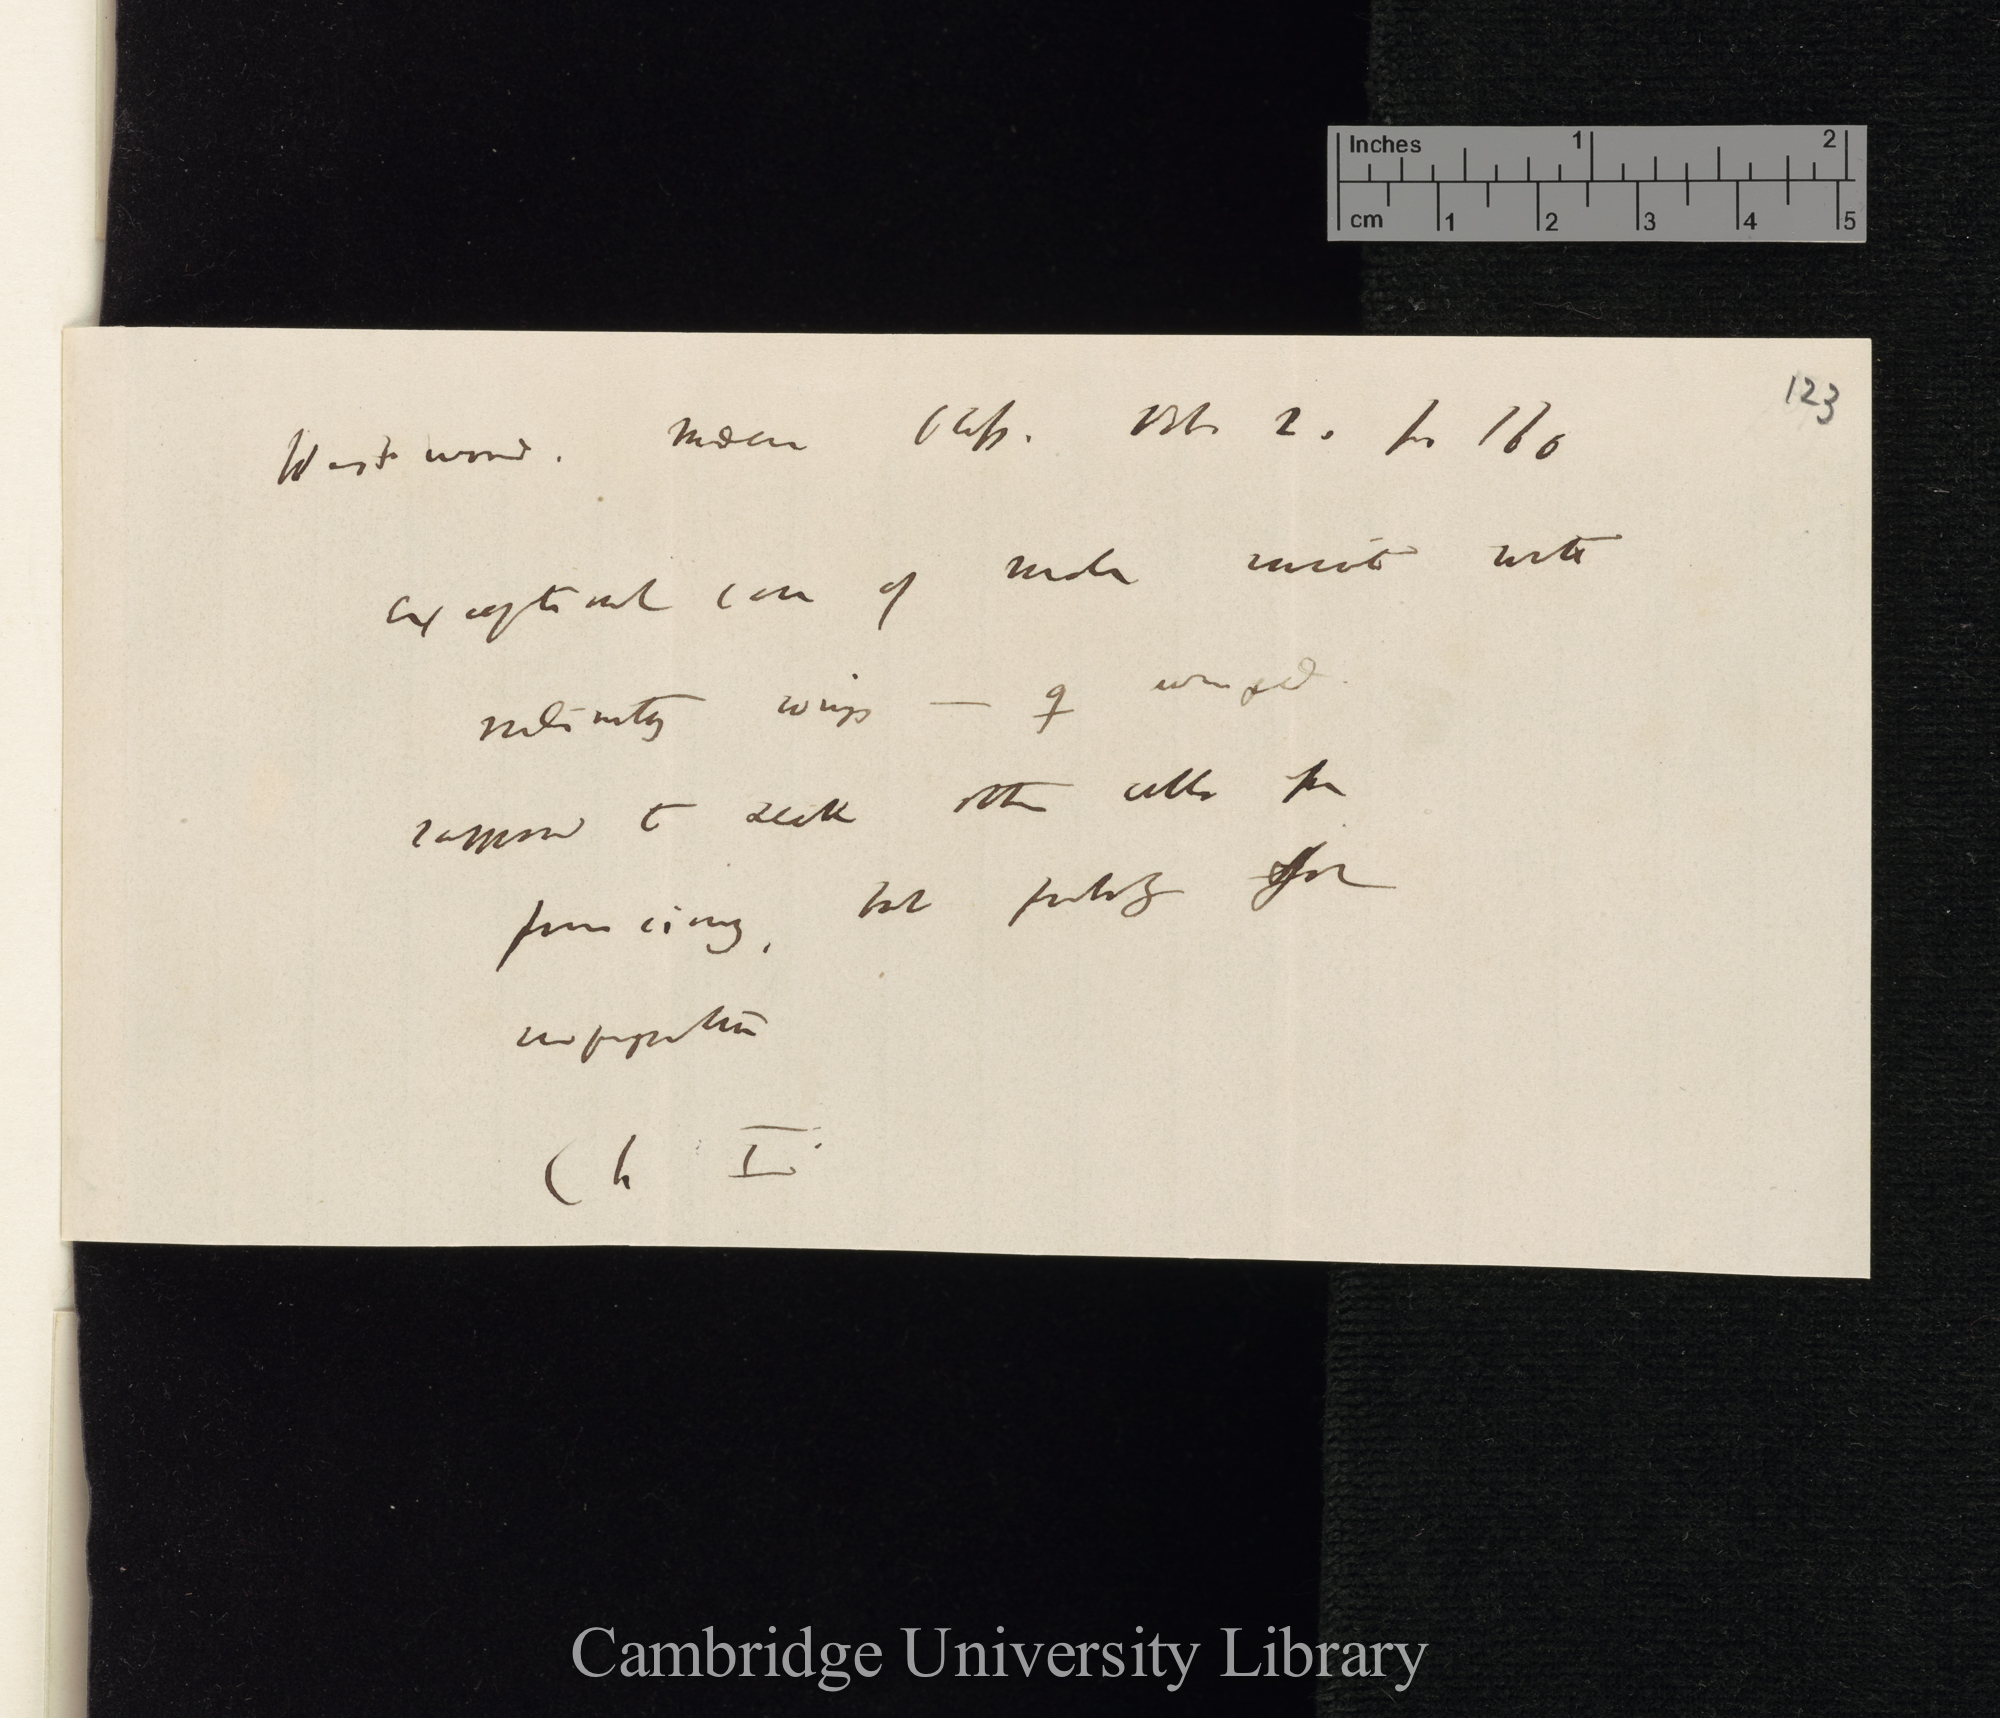 Inches 1 2
cm 1 2 3 4 5
123
Westwood. Modern Class. Vol 2. p. 160
Exceptional case of male insect with
rudimentary wings — ♀ winged
supposed to seek other cells for
pairing, but probably for
Ch I
Cambridge University Library